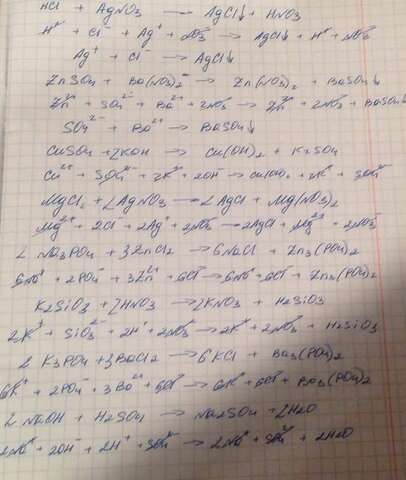 HCl + AgNO3 → AgCl↓ + HNO3
H⁺ + Cl⁻ + Ag⁺ + NO3⁻ → AgCl↓ + H⁺ + NO3⁻
Ag⁺ + Cl⁻ → AgCl↓
ZnSO4 + Ba(NO3)2 → Zn(NO3)2 + BaSO4↓
Zn²⁺ + SO4²⁻ + Ba²⁺ + 2NO3⁻ → Zn²⁺ + 2NO3⁻ + BaSO4↓
SO4²⁻ + Ba²⁺ → BaSO4↓
CuSO4 + 2KOH → Cu(OH)2 + K2SO4
Cu²⁺ + SO4²⁻ + 2K⁺ + 2OH⁻ → Cu(OH)2 + 2K⁺ + SO4²⁻
MgCl2 + 2AgNO3 → 2AgCl + Mg(NO3)2
Mg²⁺ + 2Cl⁻ + 2Ag⁺ + 2NO3⁻ → 2AgCl + Mg²⁺ + 2NO3⁻
2Na3PO4 + 3ZnCl2 → 6NaCl + Zn3(PO4)2
6Na⁺ + 2PO4⁻ + 3Zn²⁺ + 6Cl⁻ → 6Na⁺ + 6Cl⁻ + Zn3(PO4)2
K2SiO3 + 2HNO3 → 2KNO3 + H2SiO3
2K⁺ + SiO3²⁻ + 2H⁺ + 2NO3⁻ → 2K⁺ + 2NO3⁻ + H2SiO3
2K3PO4 + 3BaCl2 → 6KCl + Ba3(PO4)2
6K⁺ + 2PO4⁻ + 3Ba²⁺ + 6Cl⁻ → 6K⁺ + 6Cl⁻ + Ba3(PO4)2
2NaOH + H2SO4 → Na2SO4 + 2H2O
2Na⁺ + 2OH⁻ + 2H⁺ + SO4²⁻ → 2Na⁺ + SO4²⁻ + 2H2O